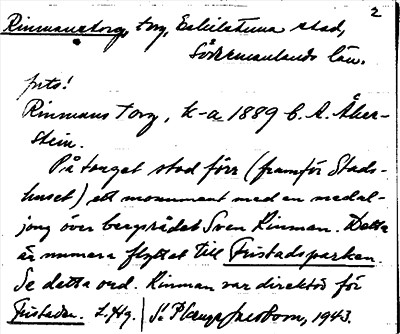 2
Rinmanstorg, torg, Eskilstuna stad,
Södermanlands län.
puts!
Rinmans torg, k-a 1889 C. A. Åker-
stein.
På torget stod förr (framför Stads-
huset) ett monument med en medal-
jong över bergsrådet Sven Rinman. Detta
är numera flyttat till Fristadsparken.
Se detta ord. Rinman var direktör för
Fristaden. S:t Jacobson, 1943.